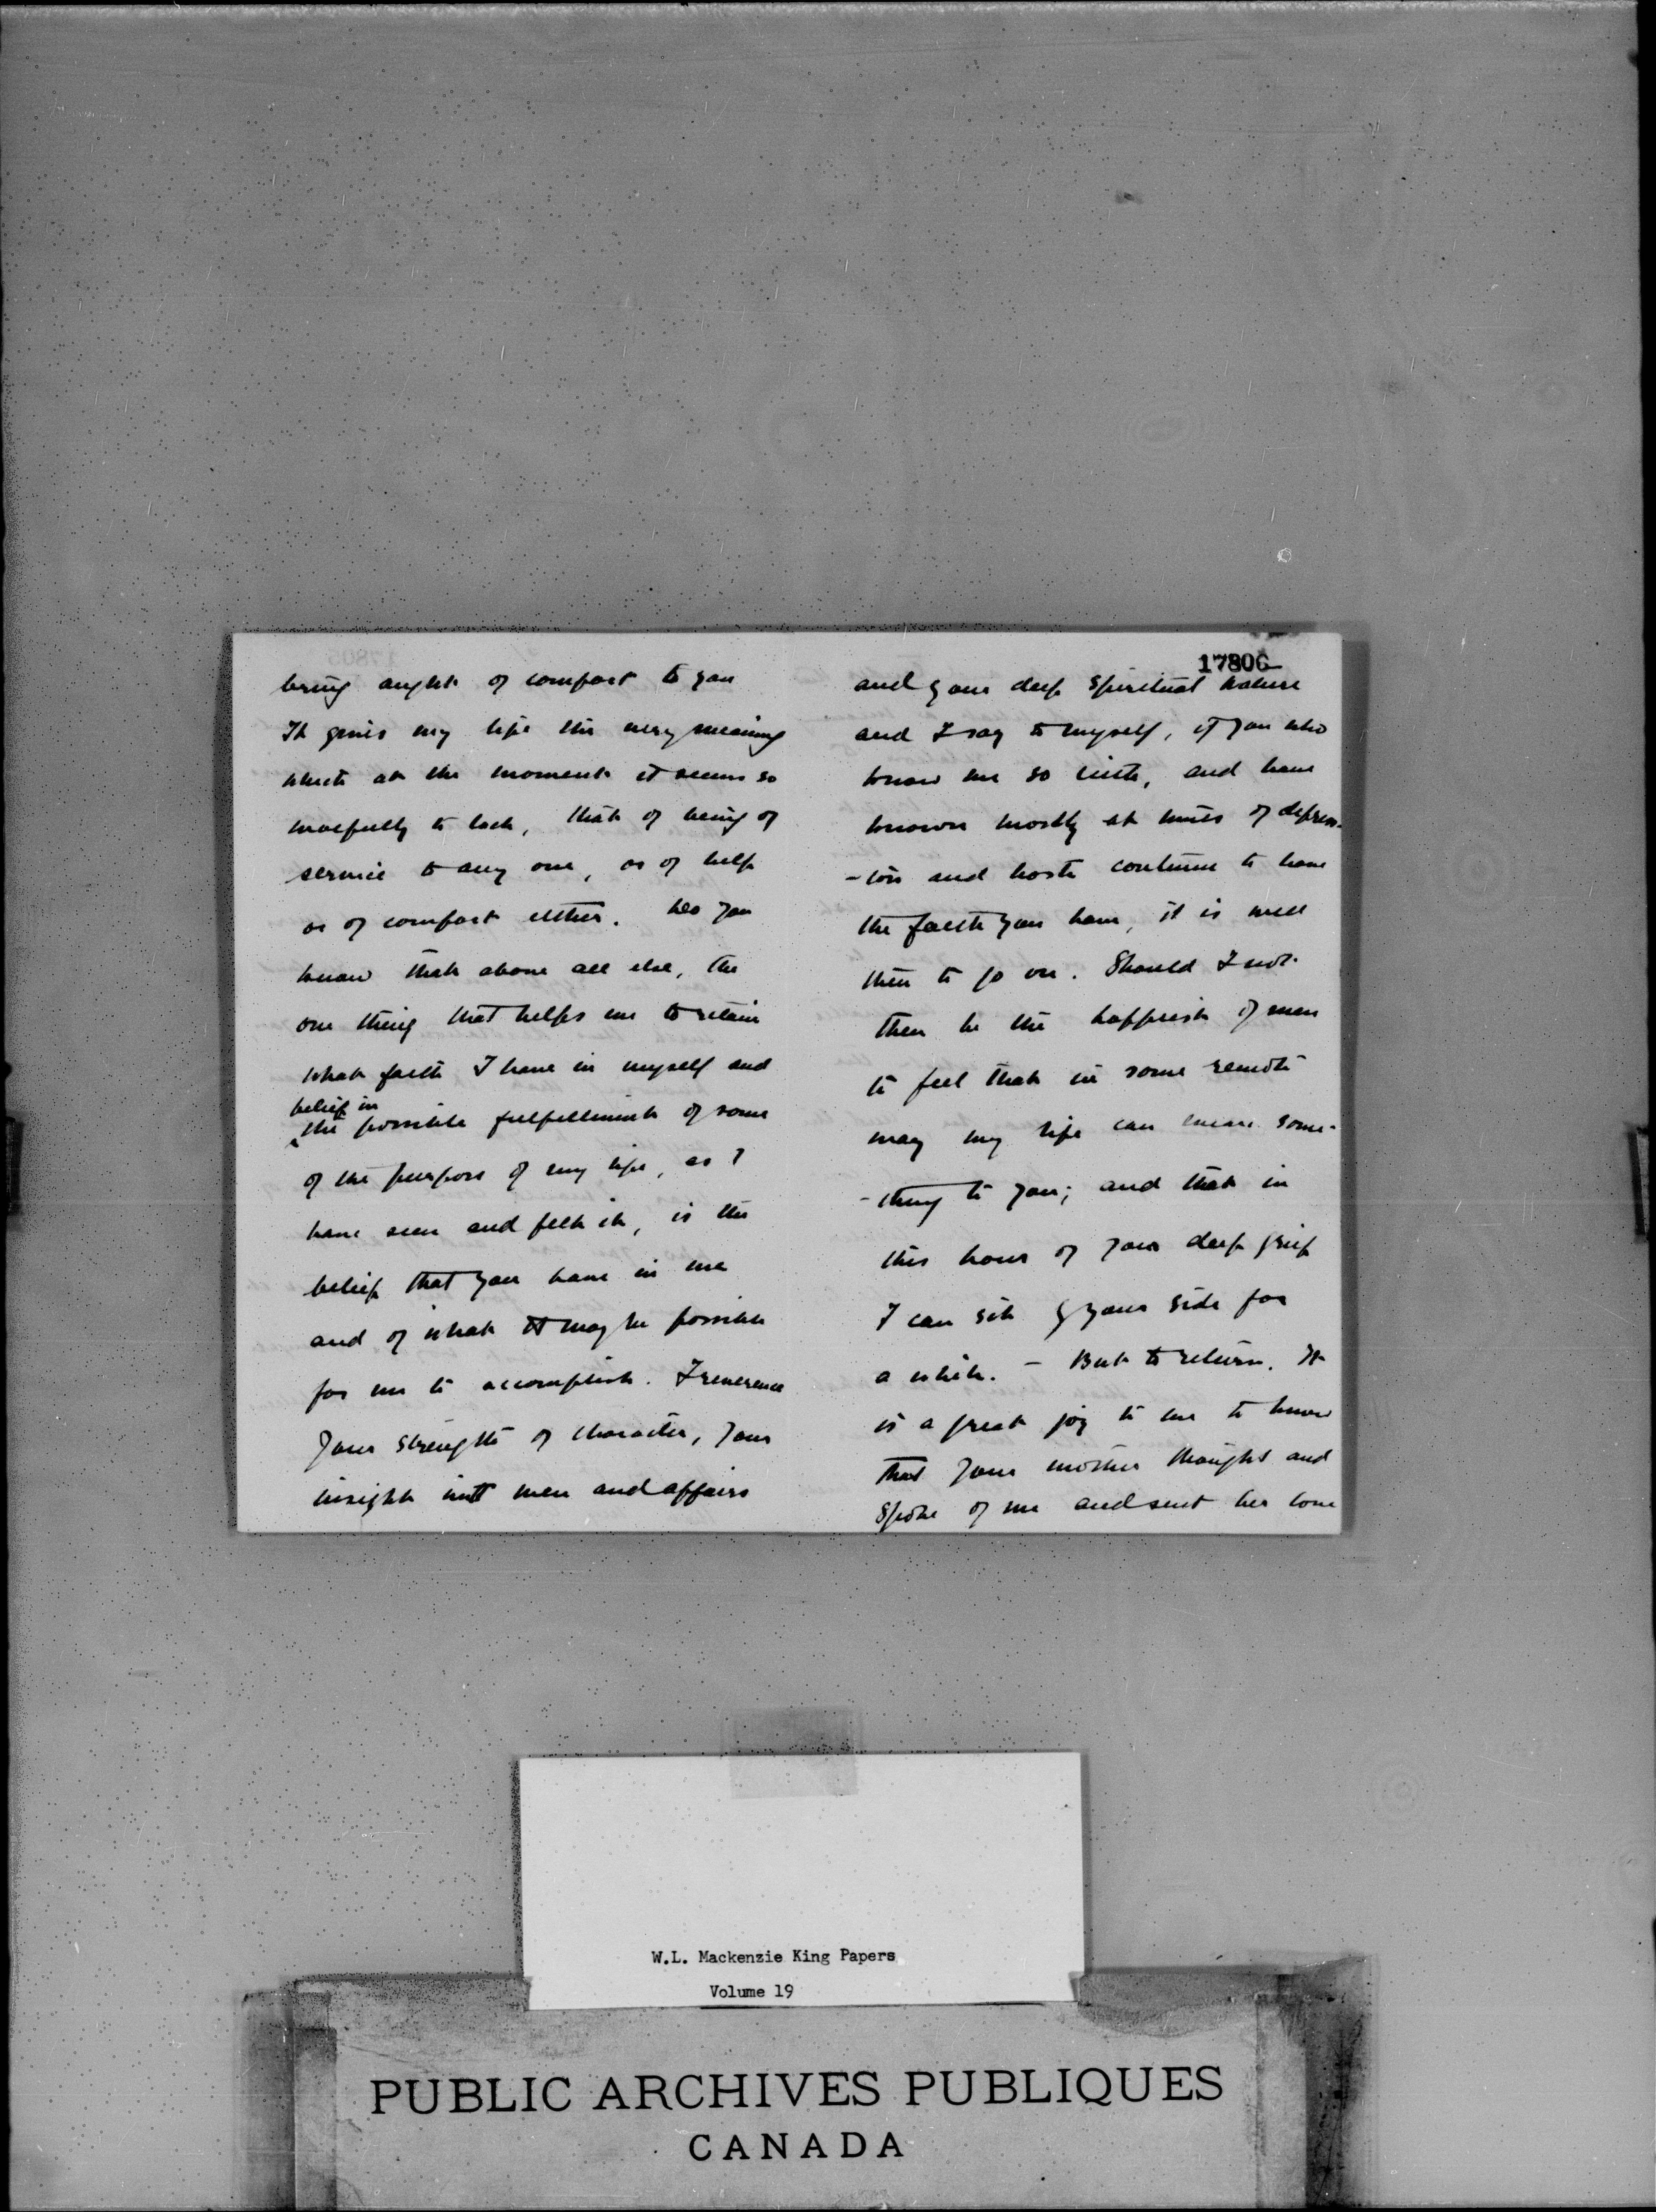 bring aught of comfort to you
It gives my life the very meaning
which at the moment it seems so
woefully to lack, that of being of
service to any one, or of help
or of comfort either. Do you
know that above all else, the
one thing that helps me to retain
what faith I have in myself and
belief in
the possible fulfillment of some
of the purpose of my life, as I
have seen and felt it, is the
belief that you have in me
and of what it may be possible
for me to accomplish. I reverence
your strength of character, your
insight into men and affairs
17806
and your deep spiritual nature
and I say to myself, if you who
know me so little, and have
known mostly at times of depress-
-ion and haste continue to have
the faith you have, it is well
then to go on. Should I not
then be the happiest of men
to feel that in some remote
way my life can mean some-
-thing to you; and that in
this hour of your deep grief
I can sit by your side for
a while. - But to return. It
is a great joy to me to know
that your mother thought and
spoke of me and sent her love
W.L. Mackenzie King Papers
Volume 19
PUBLIC ARCHIVES PUBLIQUES
CANADA